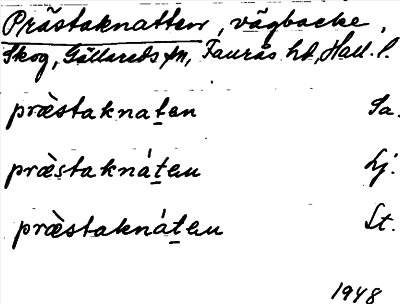 Prästaknatten, vägbacke,
Skog, Gällareds sn, Faurås hd, Hall. l.
præ̀staknaten Sa.
præ̀staknáten Lj.
præ̀staknáten St.
1948